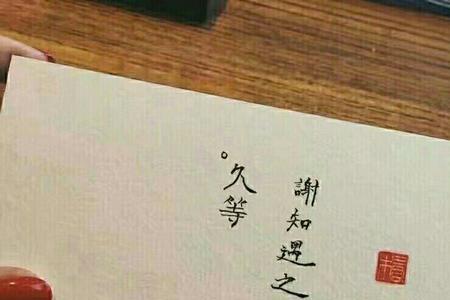 謝知遇之
。久等